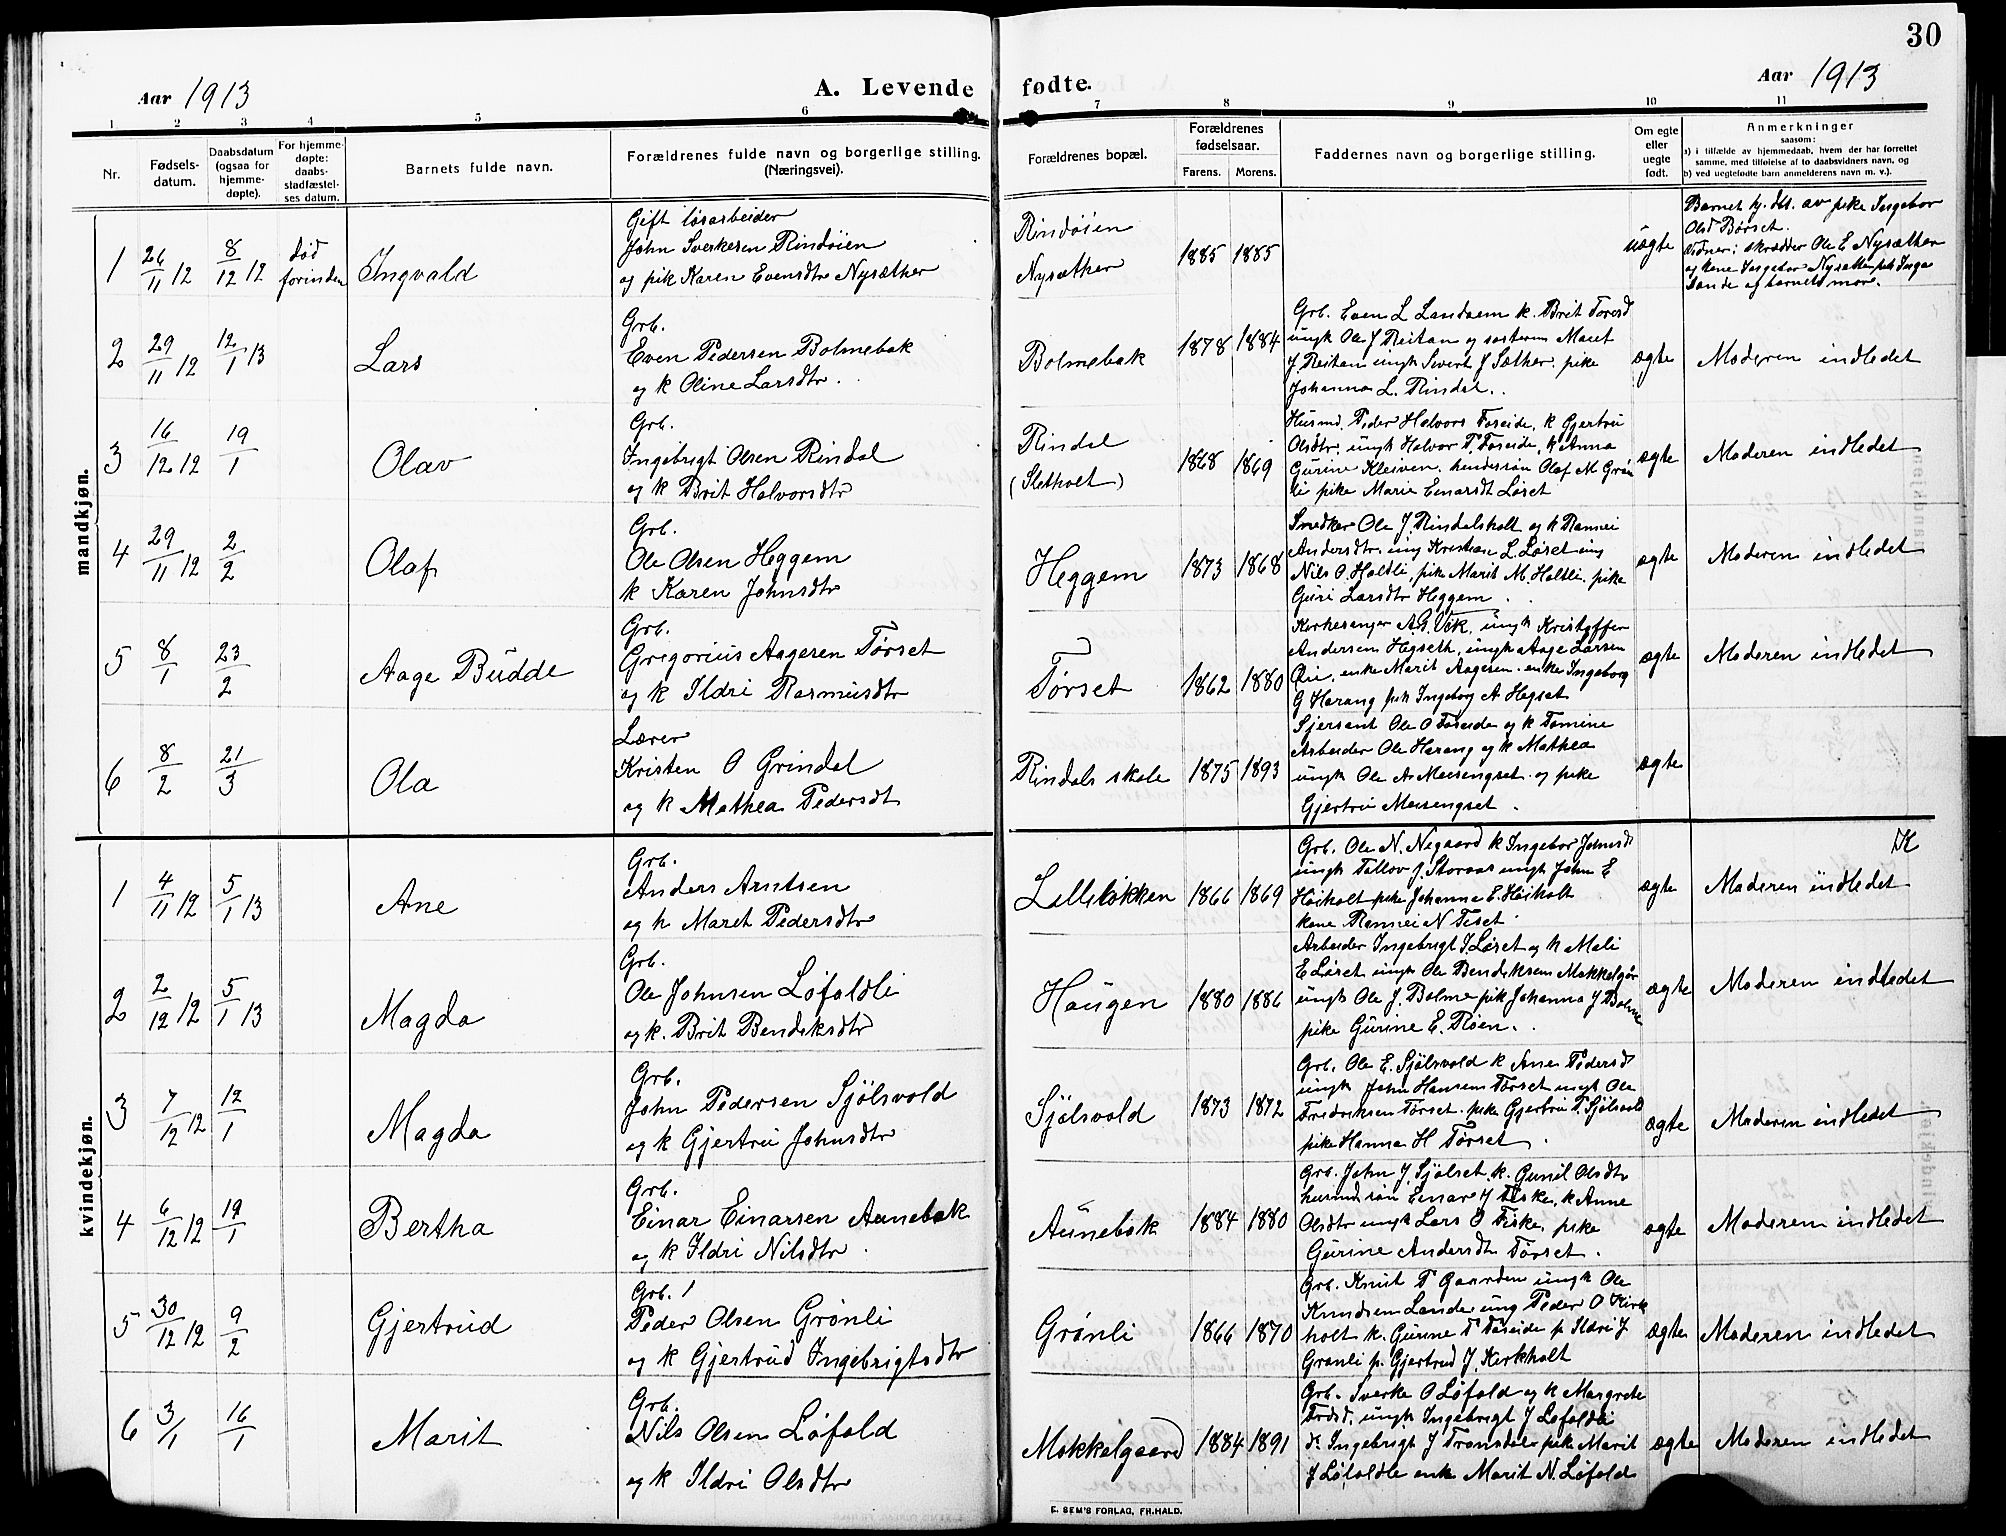 30
Aar 1913
A. Levende fødte.
Aar 1913
1 2 3 4 5 6 7 8 9 10 11
Nr.
Fødsels-
datum.
Daabsdatum
(ogsaa for
hjemme-
døpte).
For hjemme-
døpte:
daabs-
stadfæstel-
ses datum.
Barnets fulde navn.
Forældrenes fulde navn og borgerlige stilling.
(Næringsvei).
Forældrenes bopæl.
Forældrenes
fødselsaar.
Farens. Morens.
Faddernes navn og borgerlige stilling.
Om egte
eller
uegte
født.
Anmerkninger
saasom:
a) i tilfælde av hjemmedaab, hvem der har forrettet
samme, med tilføielse af to daabsvidners navn, og
b) ved uegtefødte barn anmelderens navn m. v.).
mandkjøn.
1 26/11 12 8/12 12 død forinden Ingvald
Gift løsarbeider
John Sverkesen Rindøien
og pik Karen Evensdtr Nysæther
Rindøien
Nysæther
1885 1885
uægte
Barnet hj. dbt. av pike Ingebor
Olsd Børset.
Vidner: skrædder Ole E Nysæther
og kone Ingebor Nysæther pik Inga
Sande af barnets mor.
2 29/11 12 12/1 13 Lars
Grb.
Even Pedersen Bolmebak
og k Oline Larsdtr.
Bolmebak
1878 1884
Grb. Even L Landsem k. Brit Toresd
ungk Ole J Reitan og søsteren Maret
J Reitan ungk Sivert J Sæther. pike
Johanna L. Rindal.
ægte
Moderen indledet
3 16/12 12 19/1 Olav
Grb.
Ingebrigt Olsen Rindal
og k Brit Halvorsdtr
Rindal
(Sletholt)
1868 1869
Husmd. Peder Halvors Foseide, k Gjertru
Olsdtr, ungk Halvor P Foseide, k Anna
Gurine Kleiven. hendes søn Olaf M Grøn
li pike Marie Einarsdt Løset
ægte
Moderen indledet
4 29/11 12 2/2 Olaf
Grb.
Ole Olsen Heggem
k Karen Johnsdtr
Heggem
1873 1868
Snedker Ole J. Rindalsholt og k Rannei
Andersdtr. ung Kristian L. Løset ung
Nils O. Holtli, pike Marit M. Holtli. pike
Guri Larsdtr Heggem.
ægte
Moderen indledet
5 8/1 23/2 Aage Budde
Grb.
Gregorius Aagesen Tørset
og k Ildri Rasmusdtr
Tørset
1862 1880
Kirkesanger A. G. Vik, ungk Kristoffer
Andersen Hegseth, ungk Aage Larsen
Øie, enke Marit Aagesen. enke Ingeborg
G Harang pik Ingeborg A Hegset
ægte
Moderen indledet
6 8/2 21/3 Ola
Lærer
Kristen O Grindal
og k Mathea Pedersdt
Rindals skole
1875 1893
Sjersant Ole O Foseide og k Tomine
Arbeider Ole Harang og k Mathea
ungk Ole A. Moesengset. og pike
Gjertru Mosengset.
ægte
kvindekjøn.
1 4/11 12 5/1 13 Ane
Grb.
Anders Arntsen
og k Maret Pedersdtr
Lilleløkken
1866 1869
Grb. Ole N. Negaard k Ingebor Johnsd
ungk Tollov J. Storaas ungk John E
Høiholt pike Johanna E. Høiholt
kone Rannei N Tiset.
ægte
K
Moderen indledet
2 2/12 12 5/1 13 Magda
Grb.
Ole Johnsen Løfaldli
og k. Brit Bendiksdtr
Haugen
1880 1886
Arbeider Ingebrigt I. Løset og k Mali
E Løset ungk Ole Bendiksen Mokkelgår
ungk Ole J. Bolme pik Johanna J Bolme
pike Gurine E. Røen.
ægte
Moderen indledet
3 7/12 12 12/1 Magda
Grb.
John Pedersen Sjölsvold
og k Gjertru Johnsdtr
Sjölsvold
1873 1872
Grb. Ole E. Sjölsvold k Ane Pedersd
ungk John Hansen Tørset ungk Ole
Fredriksen Tørset. pike Gjertru P. Sjölsvold
pike Hanna H Tørset.
ægte
Moderen indledet
4 6/12 12 19/1 Bertha
Grb.
Einar Einarsen Aunebak
og k Ildri Nilsdtr.
Aunebak
1884 1880
Grb. John J. Sjölset k. Gunil Olsdtr
husmd. søn Einar J Fiske, k Anne
Olsdtr ungk Lars O Fiske, pike
Gurine Andersdt Tørset.
ægte
Moderen indledet
5 30/12 12 9/2 Gjertrud
Grb.
Peder Olsen Grønli
og k Gjertrud Ingebrigtsdtr
Grønli
1866 1870
Grb. Knut P Gaarden ungk Ole
Knudsen Lande ung Peder O Kirk
holt k. Gurine P Foseide p Ildri J
Grønli p. Gjertrud J. Kirkholt
ægte
Moderen indledet
6 3/1 16/1 Marit
Grb.
Nils Olsen Løfald
og k Ildri Olsdtr
Mokkelgaard
1884 1891
Grb. Sverke O Løfald og k Margrete
ungk Ingebrigt J Løfaldli
Ingebrigt J Tronsdal pike Marit
J Løfaldle enk Marit N. Løfald
ægte
Moderen indledet
E. SEM'S FORLAG, FR.HALD.